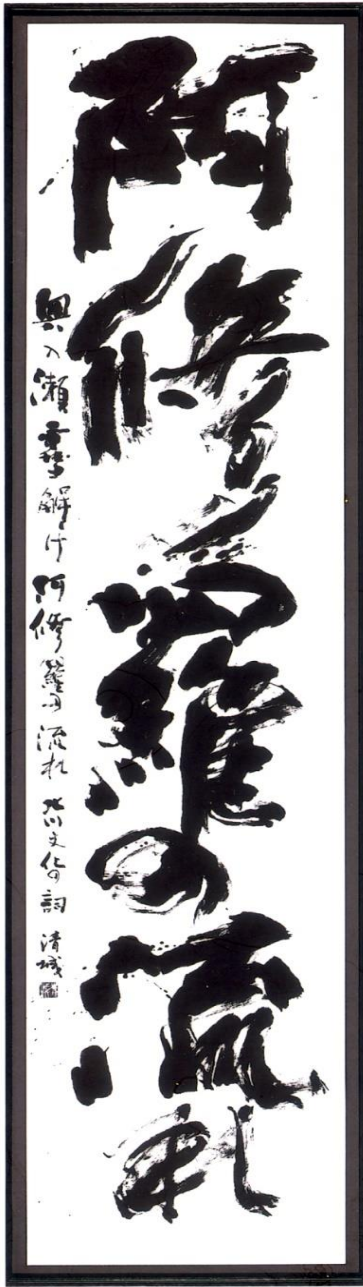 阿修羅の流れ
奥の瀬雪解け阿修羅の流れ 北川文化の詞 清城